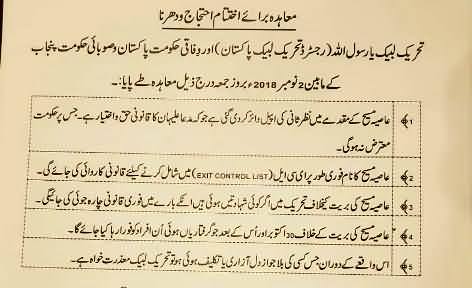 معاہدہ برائے اختتام احتجاج و دھرنا
تحریک لبیک یارسول اللہ (رجسٹرڈ تحریک لبیک پاکستان) اور وفاقی حکومت پاکستان و صوبائی حکومت پنجاب
کے مابین 2 نومبر 2018ء بروز جمعہ درج ذیل معاہدہ طے پایا:-
﴿1 عاصیہ مسیح کے مقدمے میں نظر ثانی کی اپیل دائر کردی گئی ہے جو کہ مدعا علیہان کا قانونی حق و اختیار ہے۔ جس پر حکومت
معترض نہ ہوگی۔
﴿2 عاصیہ مسیح کا نام فوری طور پر ای سی ایل (EXIT CONTROL LIST) میں شامل کرنے کیلئے قانونی کاروائی کی جائے گی۔
﴿3 عاصیہ مسیح کی بریت کیخلاف تحریک میں اگر کوئی شہادتیں ہوئی ہیں انکے بارے میں فوری قانونی چارہ جوئی کی جائیگی۔
﴿4 عاصیہ مسیح کی بریت کے خلاف 30 اکتوبر اور اُس کے بعد جو گرفتاریاں ہوئی اُن افراد کو فوراً رہا کیا جائے گا۔
﴿5 اس واقعے کے دوران جس کسی کی بلا جواز دل آزاری یا تکلیف ہوئی ہو تو تحریک لبیک معذرت خواہ ہے۔